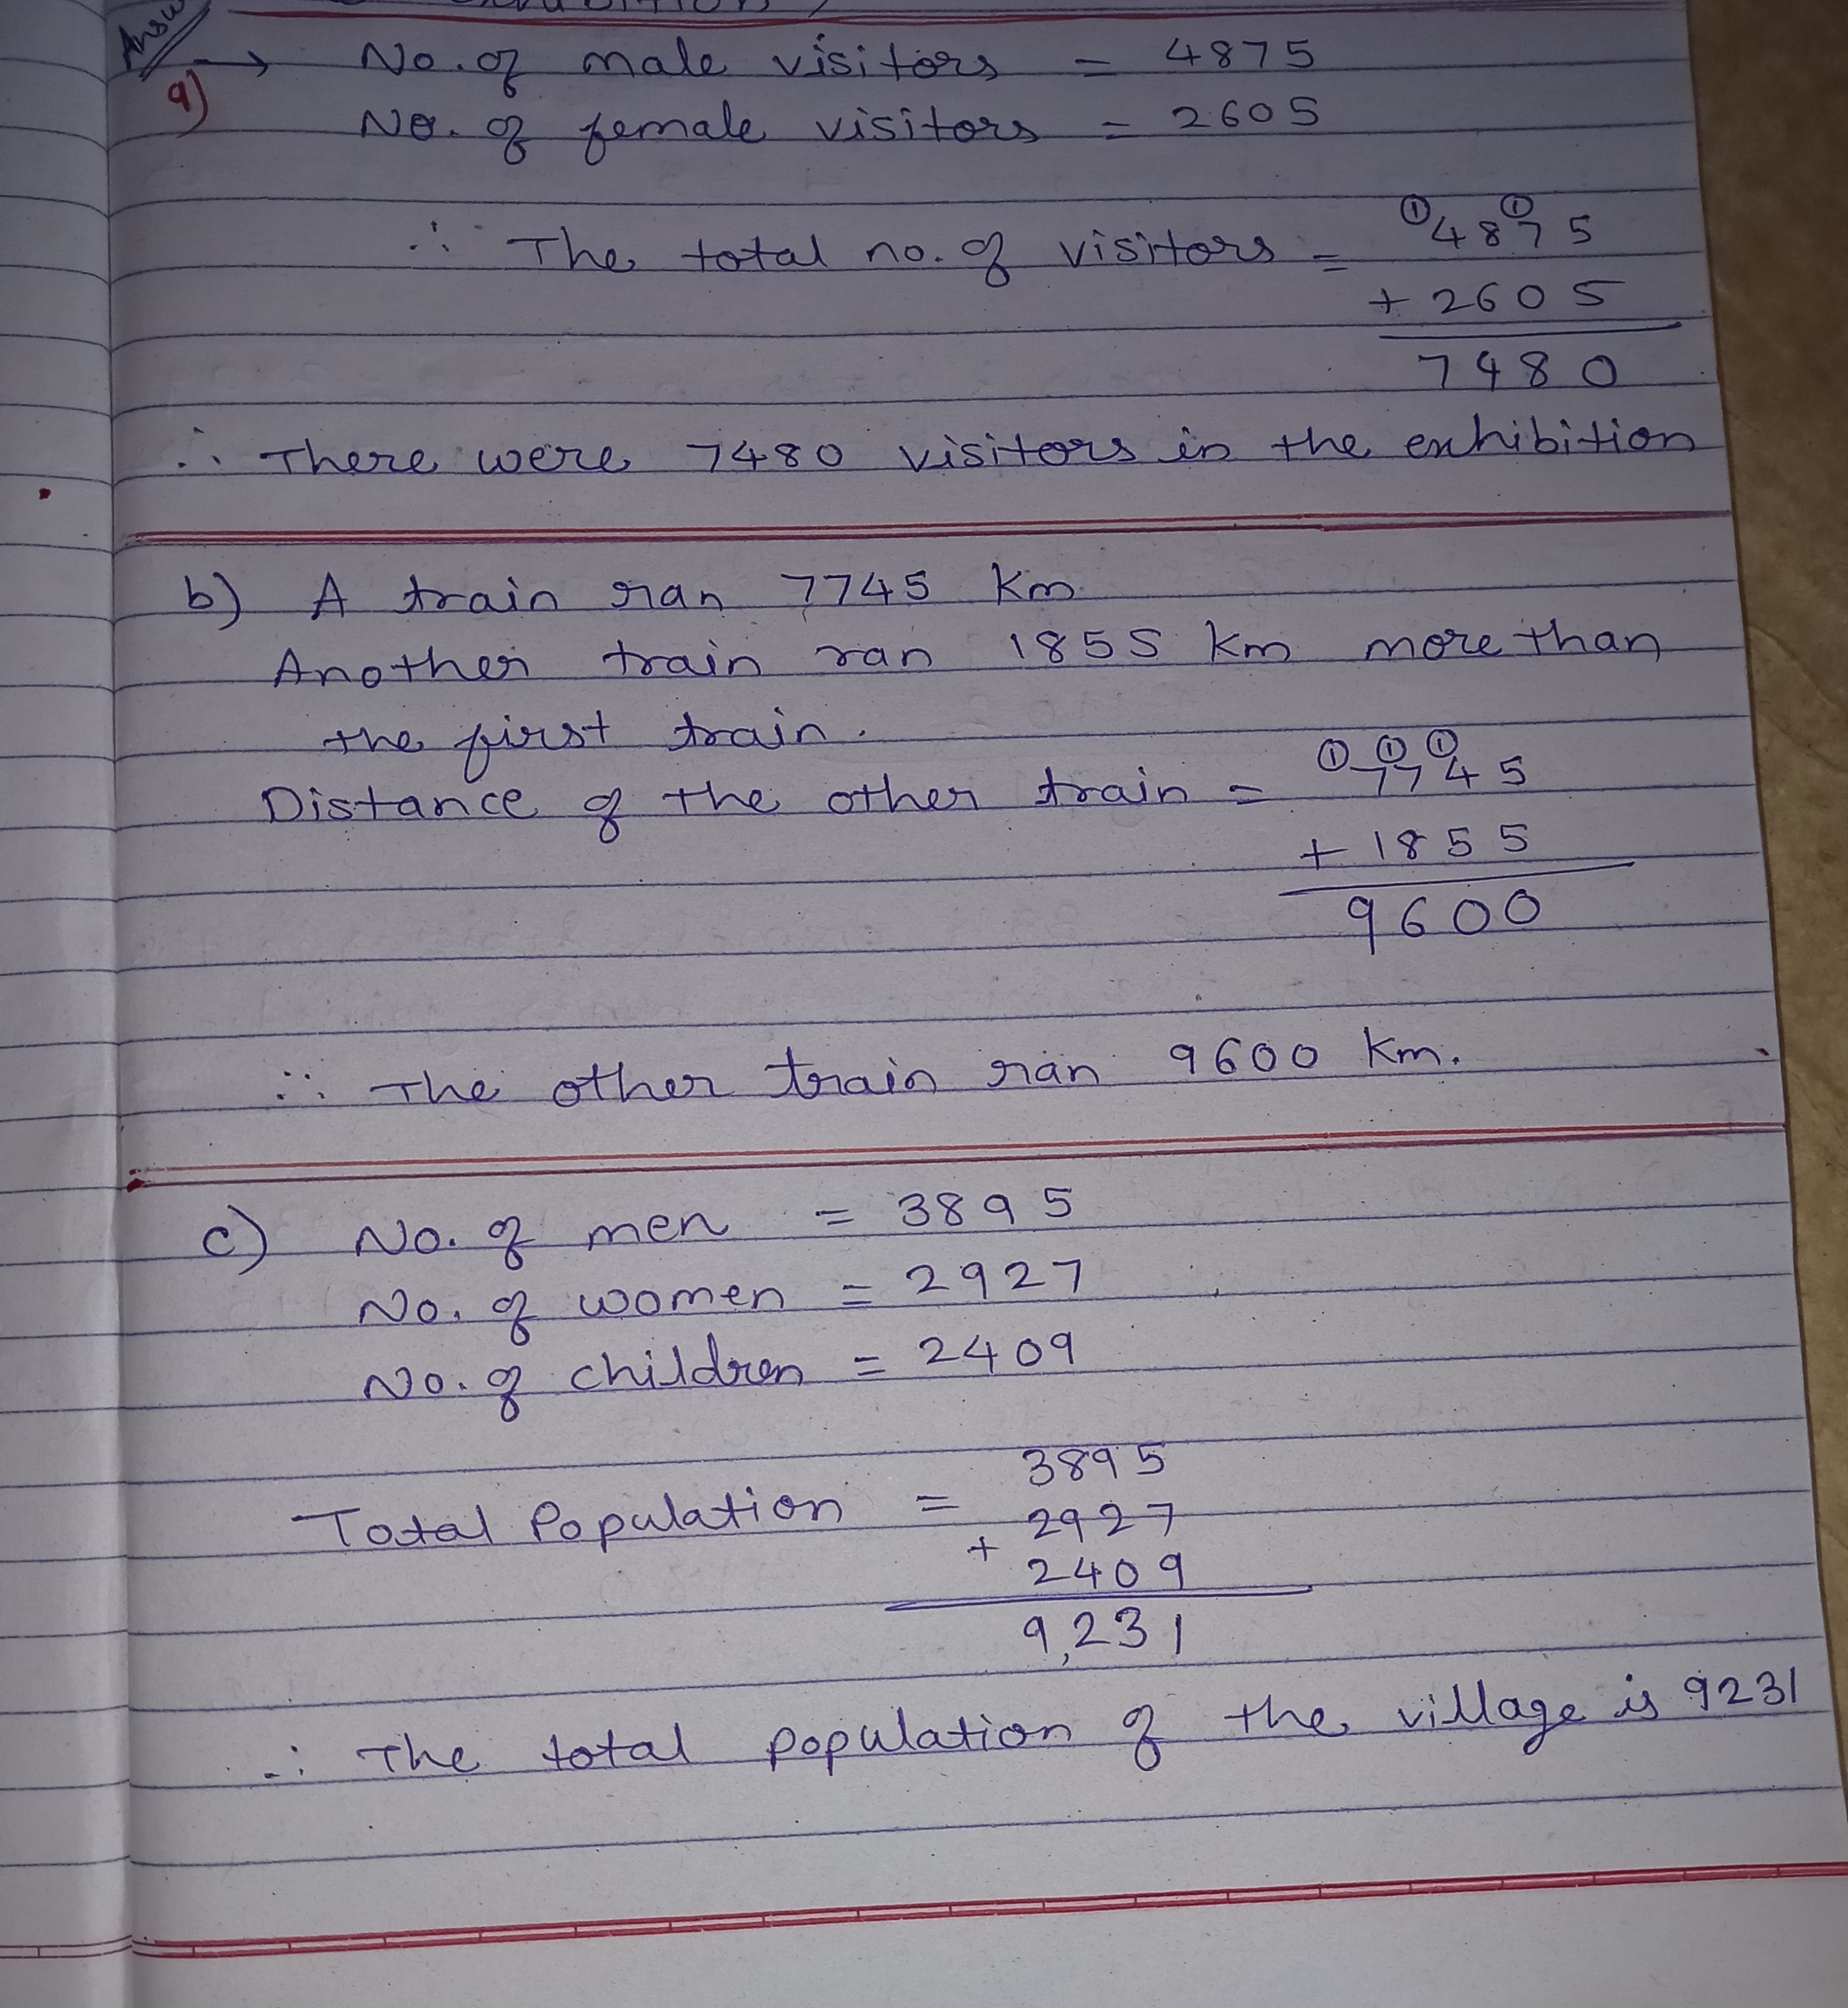 Answ
a) → No. of male visitors = 4875
No. of female visitors = 2605
① ①
∴ The total no. of visitors = 4875
+ 2605
7480
∴ There were 7480 visitors in the exhibition
b) A train ran 7745 Km
Another train ran 1855 Km more than
the first train.
① ① ①
Distance of the other train = 7745
+ 1855
9600
∴ The other train ran 9600 Km.
c) No. of men = 3895
No. of women = 2927
No. of children = 2409
3895
Total Population = + 2927
2409
9,231
∴ The total population of the village is 9231